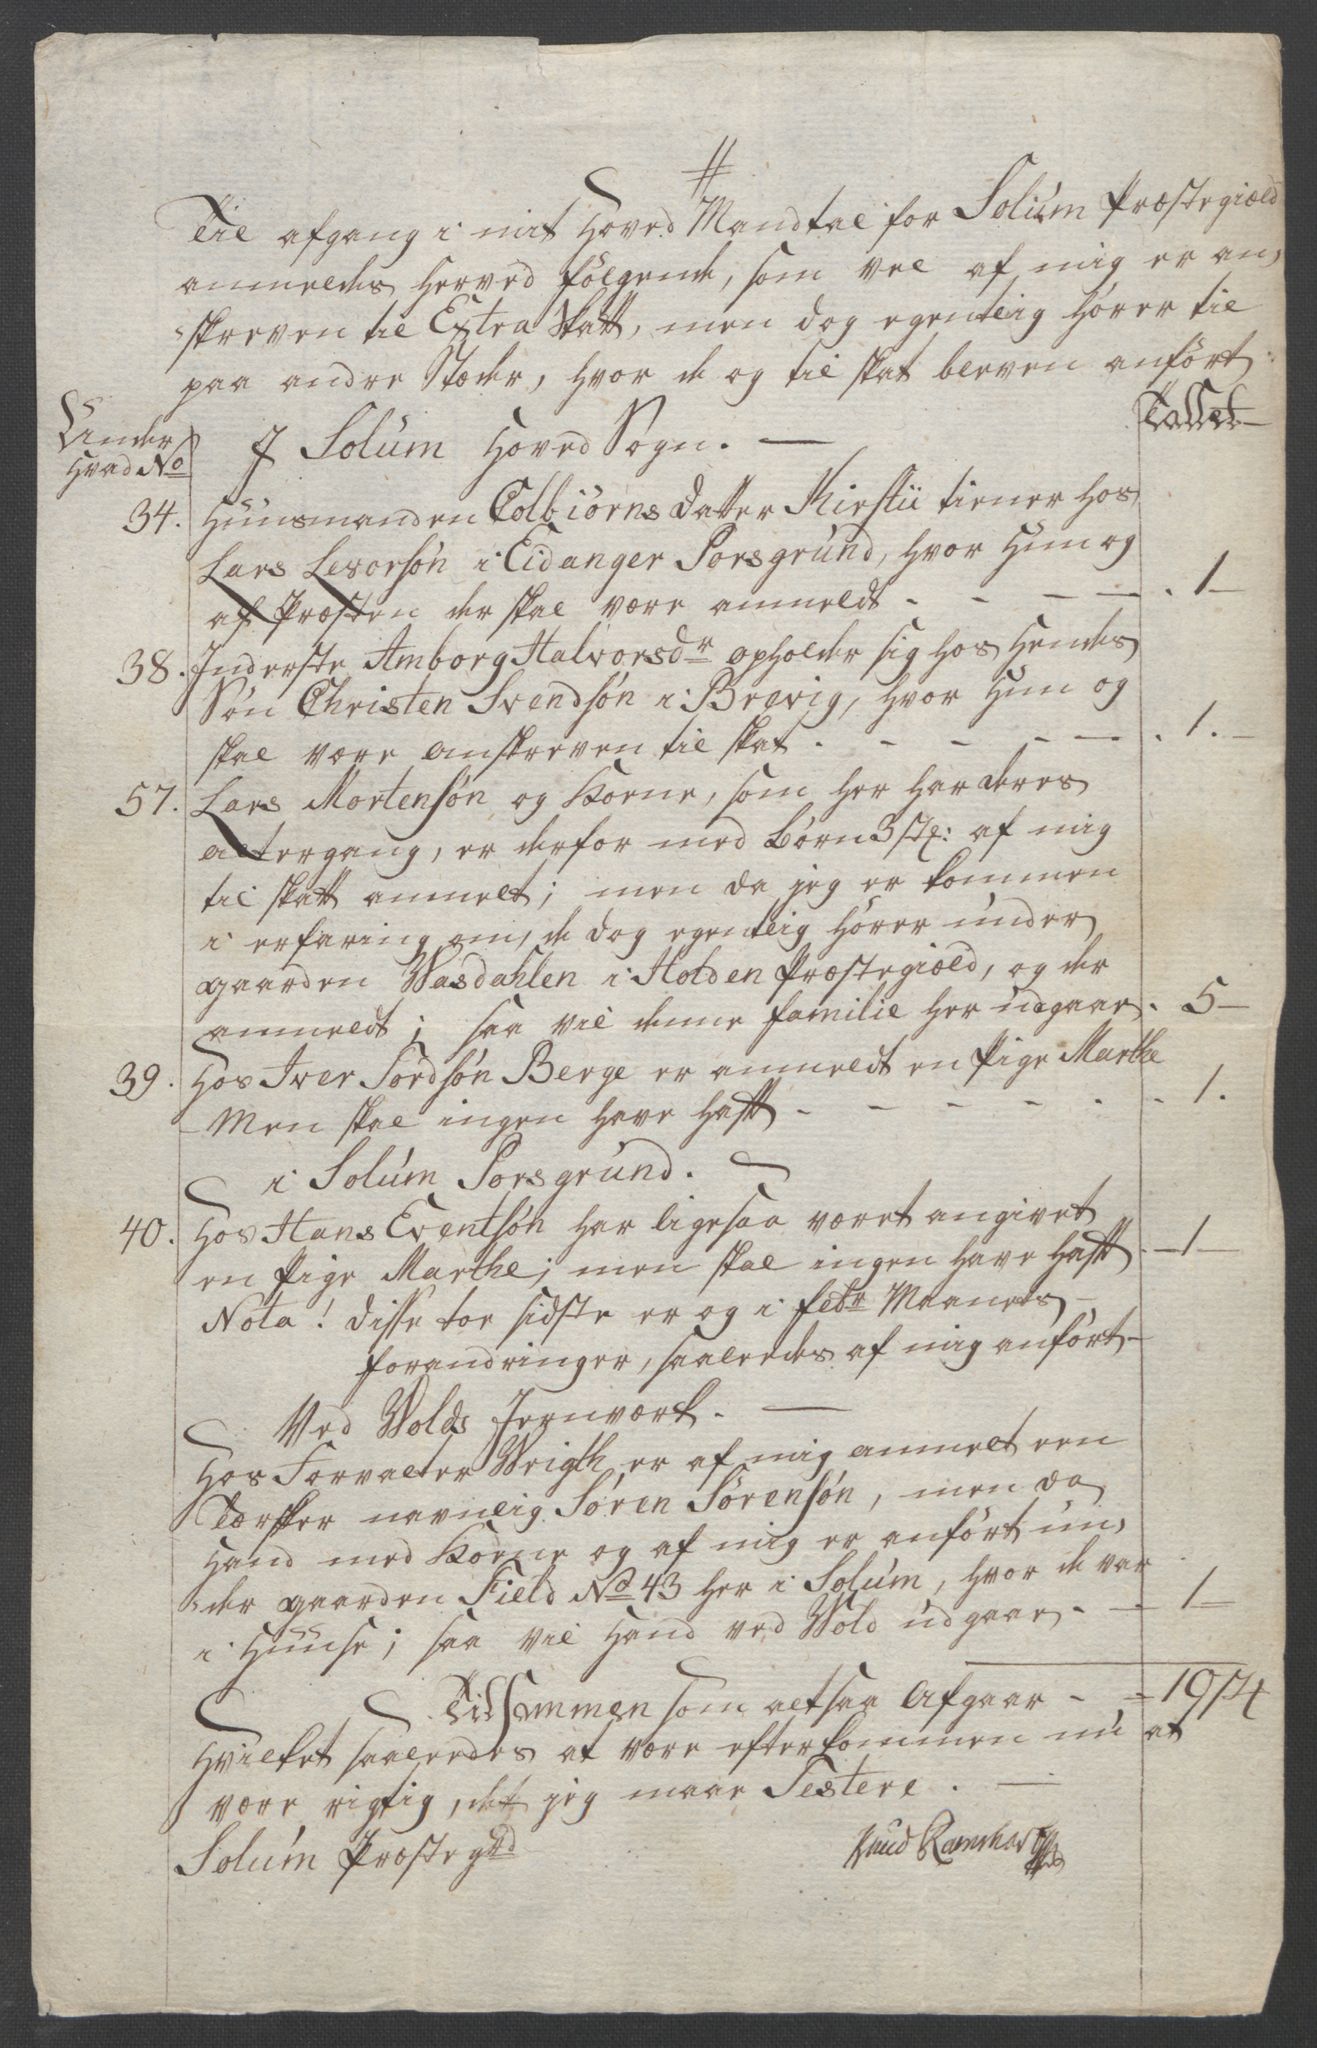 Til afgang i mit Hoved Mandtal for Solum Præstegiæld
anmeldes herved følgende, som vel af mig er an,
skreven til Extra Skatt, men dog egentlig hører til
paa andre Stæder, hvor de og til skat bleven anført:
Tallet
Under
hvad No
J Solum Hoved Sogn. —
34. Huusmanden Colbiørns datter Kirstii tiener hos
Lars Levorsøn i Eidanger Porsgrund, hvor Hun og
af Præsten der skal være anmeldt - - - - 1
38. Inderste Amborg Halvorsdr opholder sig hos hendes
Søn Christen Svendsøn i Brevig, hvor Hun og
skal være anskreven til skat. - - - - 1.
57. Lars Mortensøn og Kone, som her har deres
altergang, er derfor med Børn 3 stk: af mig
til skatt anmelt; men da jeg er kommen
i erfaring om, de dog egentlig hører under
gaarden Vasdahlen i Holden Præstegiæld, og der
anmeldt; saa vil denne familie her udgaae. 5
39. Hos Iver Tordsøn Berge er anmeldt en Pige Marthe
Men skal ingen have haft - - - - - - 1.
i Solum Porsgrund. —
40. Hos Hans Eventsøn har ligesaa været angivet
en Pige Marthe; men skal ingen have haft - 1
Nota! disse toe sidste er og i febr Maaneds
forandringer, saaledes af mig anført
Ved Wolds Jernværk. —
Hos Forvalter Wrigth er af mig anmelt een
Tærsker navnlig Søren Sørensøn, men da
Hand med Kone og af mig er anført un,
der gaarden Field No 43 her i Solum, hvor de var
i Huuse; saa vil Hand ved Wold udgaae. - 1
Tilsammen som altsaa Afgaar - - = 10
Hvilket saaledes at være efterkommen nu at
være rigtig, det jeg maae Testere. —
Solum Præstegld
Knud